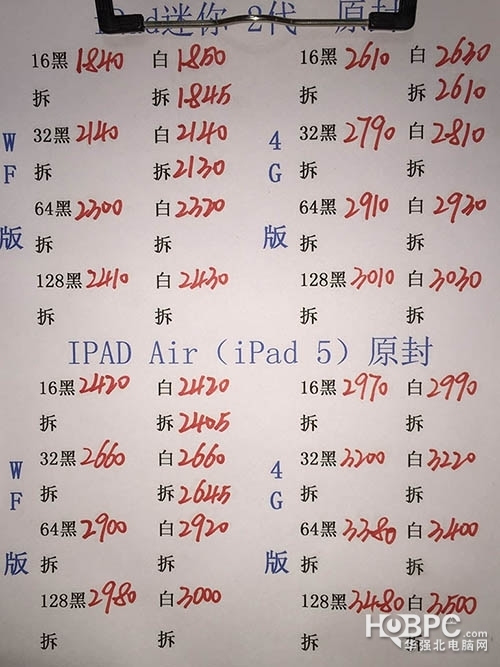 iPad迷你 2代 原封
16黑 1840 白 1850 16黑 2610 白 2630
拆 拆 1845 拆 拆 2610
WF版 4G版
32黑 2140 白 2140 32黑 2790 白 2810
拆 拆 2130 拆 拆
64黑 2300 白 2320 64黑 2910 白 2930
拆 拆 拆 拆
128黑 2410 白 2430 128黑 3010 白 3030
拆 拆 拆 拆
IPAD Air（iPad 5）原封
16黑 2420 白 2420 16黑 2970 白 2990
拆 拆 2405 拆 拆
WF版 4G版
32黑 2660 白 2660 32黑 3200 白 3220
拆 拆 2645 拆 拆
64黑 2900 白 2920 64黑 3380 白 3400
拆 拆 拆 拆
128黑 2980 白 3000 128黑 3480 白 3500
拆 拆 拆 拆
HQBPC.com
华强北电脑网